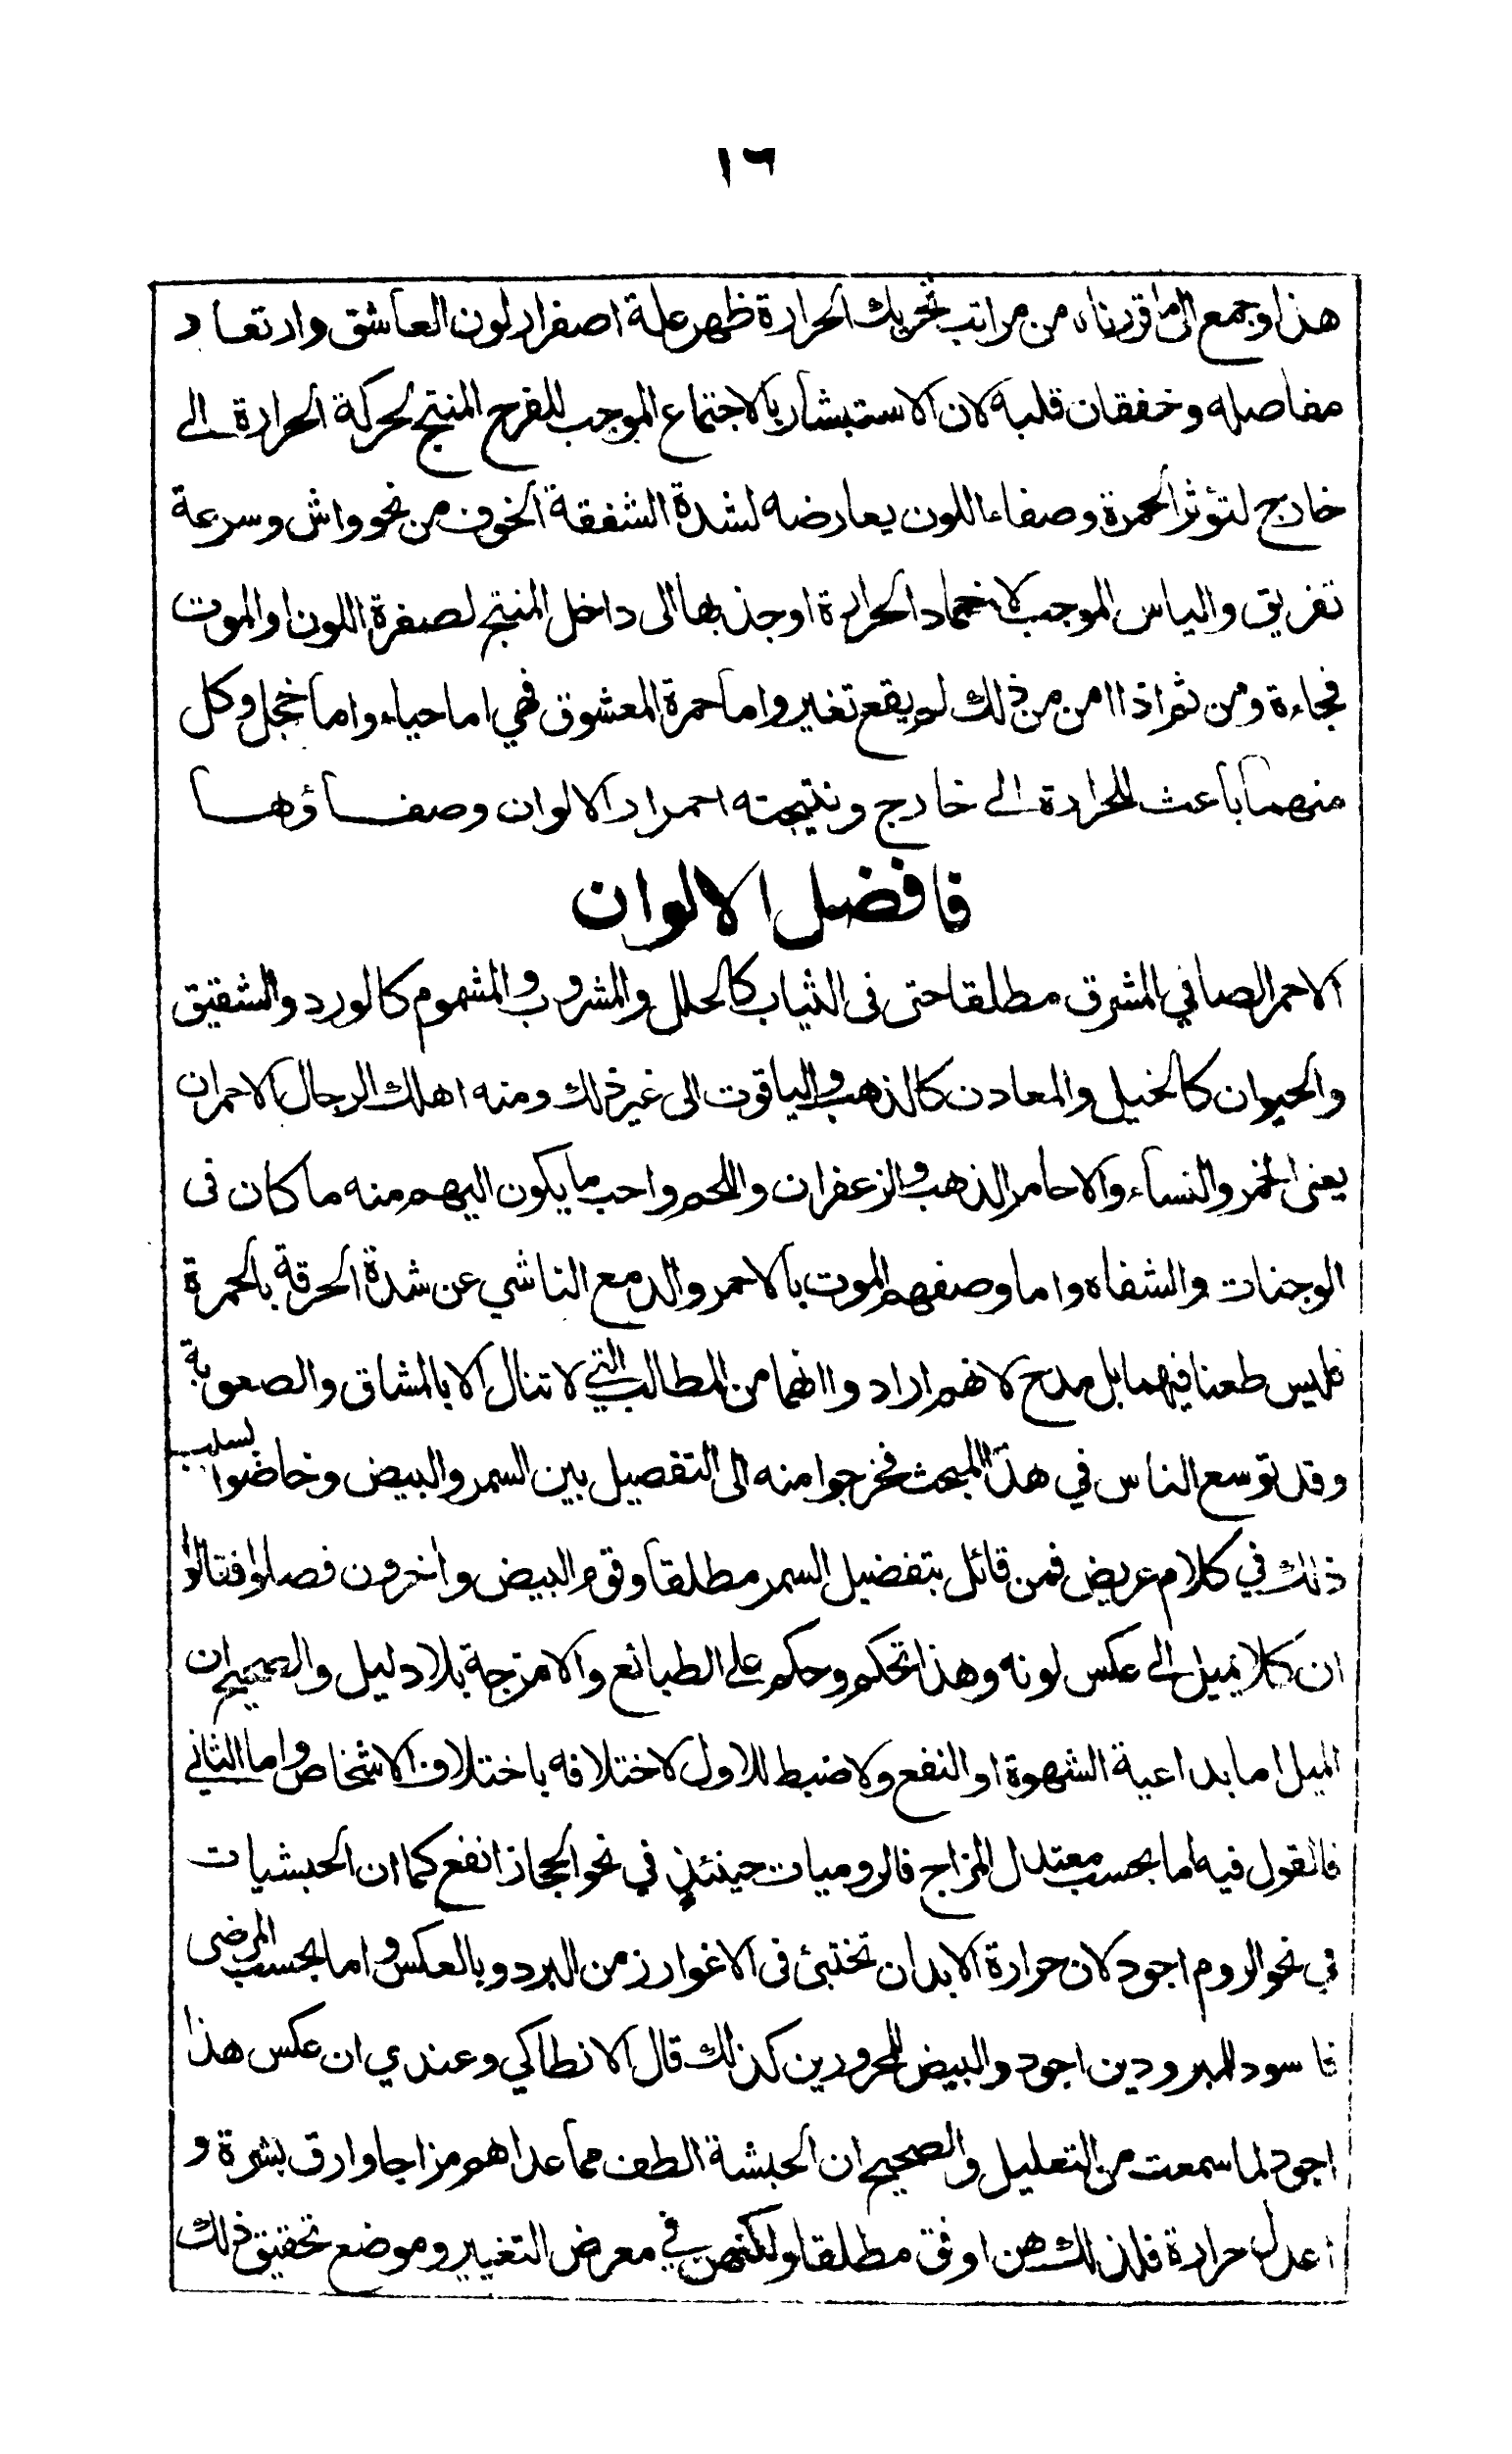 ١٦
هذا وجمع الى ما قررناه من مراتب تحريك الحرارة ظهر علة اصفرار لون العاشق وارتعاد
مفاصله وخفقان قلبه لان الاستبشار بالاجتماع الموجب للفرح المنتج لحركة الحرارة الى
خارج لتؤثر الحمرة وصفاء اللون يعارضه لشدة الشفقة الخوف من نحو واش وسرعة
تفريق والياس الموجب لاخماد الحرارة او جذبها الى داخل المنتج لصفرة اللون او الموت
فجاءة ومن ثم اذا امن من ذلك لم يقع تغير واما حمرة المعشوق فهي اما حياء واما خجل وكل
منهما باعث للحرارة الى خارج ونتيجته احمرار الالوان وصفاؤها
فافضل الالوان
الاحمر الصافي المشرق مطلقا حتى فى الثياب كالحلل والمشروب والمشموم كالورد والشقيق
والحيوان كالخيل والمعادن كالذهب والياقوت الى غير ذلك ومنه اهلك الرجال الاحمران
يعنى الخمر والنساء والاحامر الذهب والزعفران واللحم واحب ما يكون اليهم منه ما كان فى
الوجنات والشفاه واما وصفهم الموت بالاحمر والدمع الناشي عن شدة الحرقة بالحمرة
فليس طعنا فيهما بل مدح لانهم ارادوا انهما من المطالب التي لا تنال الا بالمشاق والصعوبة
وقد توسع الناس في هذا المبحث فخرجوا منه الى التفصيل بين السمر والبيض وخاضوا بسبب
ذلك في كلام عريض فمن قائل بتفضيل السمر مطلقا وقوم البيض واخرون فصلوا فقالوا
ان كلا يميل الى عكس لونه وهذا تحكم وحكم على الطبائع والامزجة بلا دليل والصحيح ان
الميل اما بداعية الشهوة او النفع ولا ضبط للاول لاختلافه باختلاف الاشخاص واما الثاني
فالقول فيه اما بحسب معتدل المزاج فالروميات حينئذ في نحو الحجاز انفع كما ان الحبشيات
في نحو الروم اجود لان حرارة الابدان تختبئ فى الاغوار زمن البرد وبالعكس واما بحسب المرضى
فاسود للمبرودين اجود والبيض للمحرورين كذلك قال الانطاكي وعندي ان عكس هذا
اجود لما سمعت من التعليل والصحيح ان الحبشة الطف مما عداهم مزاجا وارق بشرة و
اعدل حرارة فلذلك هن اوفق مطلقا ولكنهن في معرض التغيير وموضع تحقيق ذلك